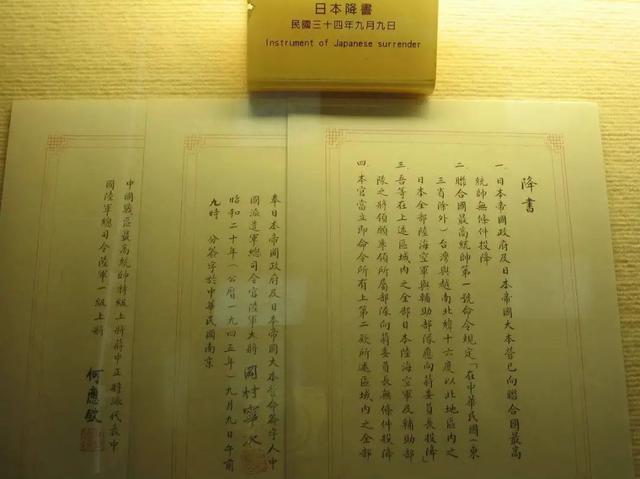 日本降書
民國三十四年九月九日
Instrument of Japanese surrender
降書
一 日本帝國政府及日本帝國大本營已向聯合國最高
統帥無條件投降
二 聯合國最高統帥第一號命令規定「在中華民國(東
三省除外)台灣與越南北緯十六度以北地區內之
日本全部陸海空軍與輔助部隊應向蔣委員長投降」
三 吾等在上述區域內之全部日本陸海空軍及輔助部
隊之將領願率領所屬部隊向蔣委員長無條件投降
四 本官當立即命令所有上第二款所述區域內之全部
奉日本帝國政府及日本帝國大本營命簽字人中
國派遣軍總司令官陸軍大將 岡村寧次
昭和二十年(公曆一九四五年)九月九日午前
九時 分簽字於中華民國南京
中國戰區最高統帥特級上將蔣中正特派代表中
國陸軍總司令陸軍一級上將
何應欽